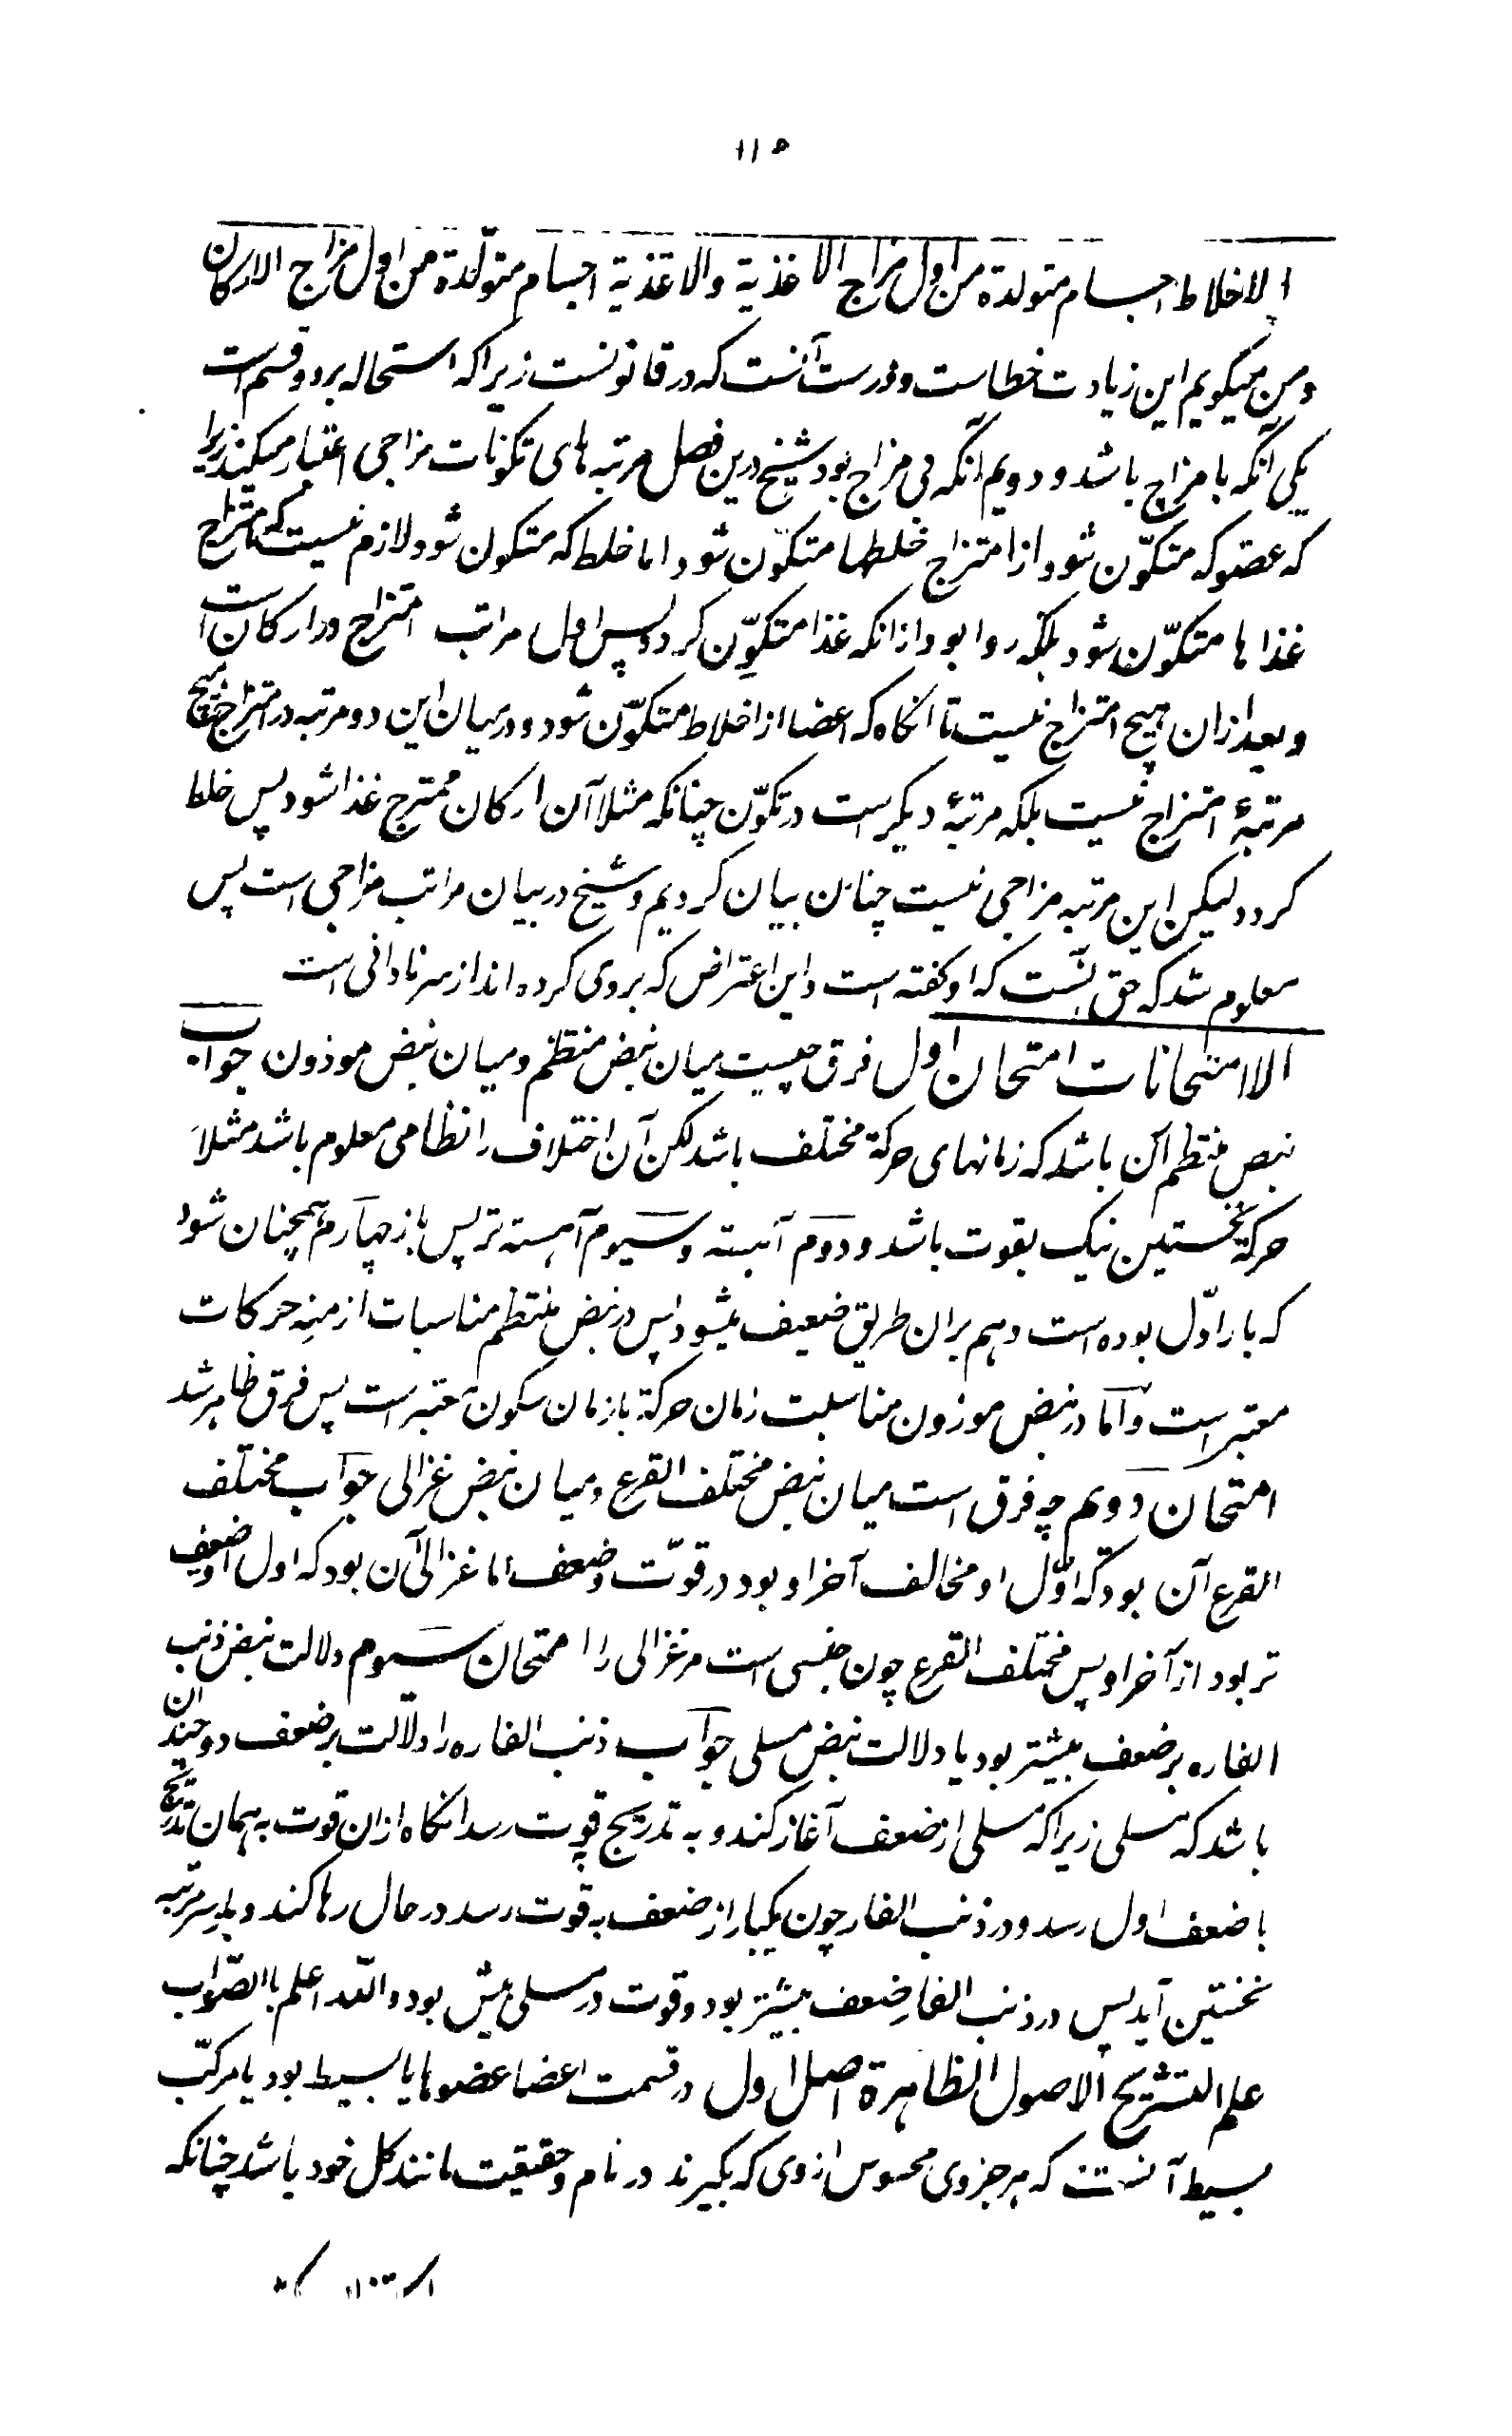 ۱۱۵
الاخلاط اجسام متولدة من اول مزاج الاغذیة والاغذیة اجسام متولّدة من اول مزاج الارکان
و من میگویم این زیادت خطاست و درست آنست که در قانونست زیراکه استحاله بر دو قسم است
یکی آنکه با مزاج باشد و دویم آنکه بی مزاج بود شیخ درین فصل مرتبه های تکونات مزاجی اعتبار میکند زیرا
که عضو که متکوّن شود از امتزاج خلطها متکوّن شود اما خلط که متکون شود لازم نیست که از امتزاج
غذاها متکوّن شود بلکه روا بود از انکه غذا متکوِّن کردد پس اول مراتب امتزاج در ارکان است
و بعد ازان هیچ امتزاج نیست تا انکاه که اعضا از اخلاط متکوّن شود و در میان این دو مرتبه در امتزاج هیچ
مرتبهٔ امتزاج نیست بلکه مرتبهٔ دیکر است در تکوّن چنانکه مثلا آن ارکان ممتزج غذا شود پس خلط
کردد لیکن این مرتبه مزاجی نیست چنانکه بیان کردیم و شیخ در بیان مراتب مزاجی است پس
معلوم شد که حق آنست که او کفته است و این اعتراض که بروی کرده اند از سر نادانی است
الامتحانات امتحان اول فرق چیست میان نبض منتظم و میان نبض موزون جواب
نبض منتظم آن باشد که زمانهای حرکة مختلف باشد لکن آن اختلاف را نظامی معلوم باشد مثلاً
حرکة نخستین نیک بقوت باشد و دوم آهسته و سیوم آهسته تر پس باز چهارم همچنان شود
که بار اوّل بوده است و هم بران طریق ضعیف میشود پس در نبض منتظم مناسبات ازمنهٔ حرکات
معتبر است و اما در نبض موزون مناسبت زمان حرکة با زمان سکون معتبر است پس فرق ظاهر شد
امتحان دویم چه فرق است میان نبض مختلف القرع و میان نبض غزالی جواب مختلف
القرع آن بود که اوّل او مخالف آخر او بود در قوّت و ضعف اما غزالی آن بود که اول او ضعیف
تر بود از آخر او پس مختلف القرع چون جنسی است مر غزالی را امتحان سیوم دلالت نبض ذنب
الفاره بر ضعف بیشتر بود یا دلالت نبض مسلی جواب ذنب الفاره را دلالت بر ضعف دو چندان
باشد که مسلی زیراکه مسلی از ضعف آغاز کند و به تدریج بقوت رسد انکاه ازان قوت به همان تدریج
با ضعف اول رسد و در ذنب الفار چون یکبار از ضعف به قوت رسد در حال رها کند و با سر مرتبه
نخستین آید پس در ذنب الفار ضعف بیشتر بود و قوت در مسلی بیش بود و الله اعلم بالصّواب
علم التشریح الاصول الظاهرة اصل اول در قسمت اعضا عضوها یا بسیط بود یا مرکّب
بسیط آنست که هر جزوی محسوس از وی که بگیرند در نام و حقیقت مانند کل خود باشد چنانکه